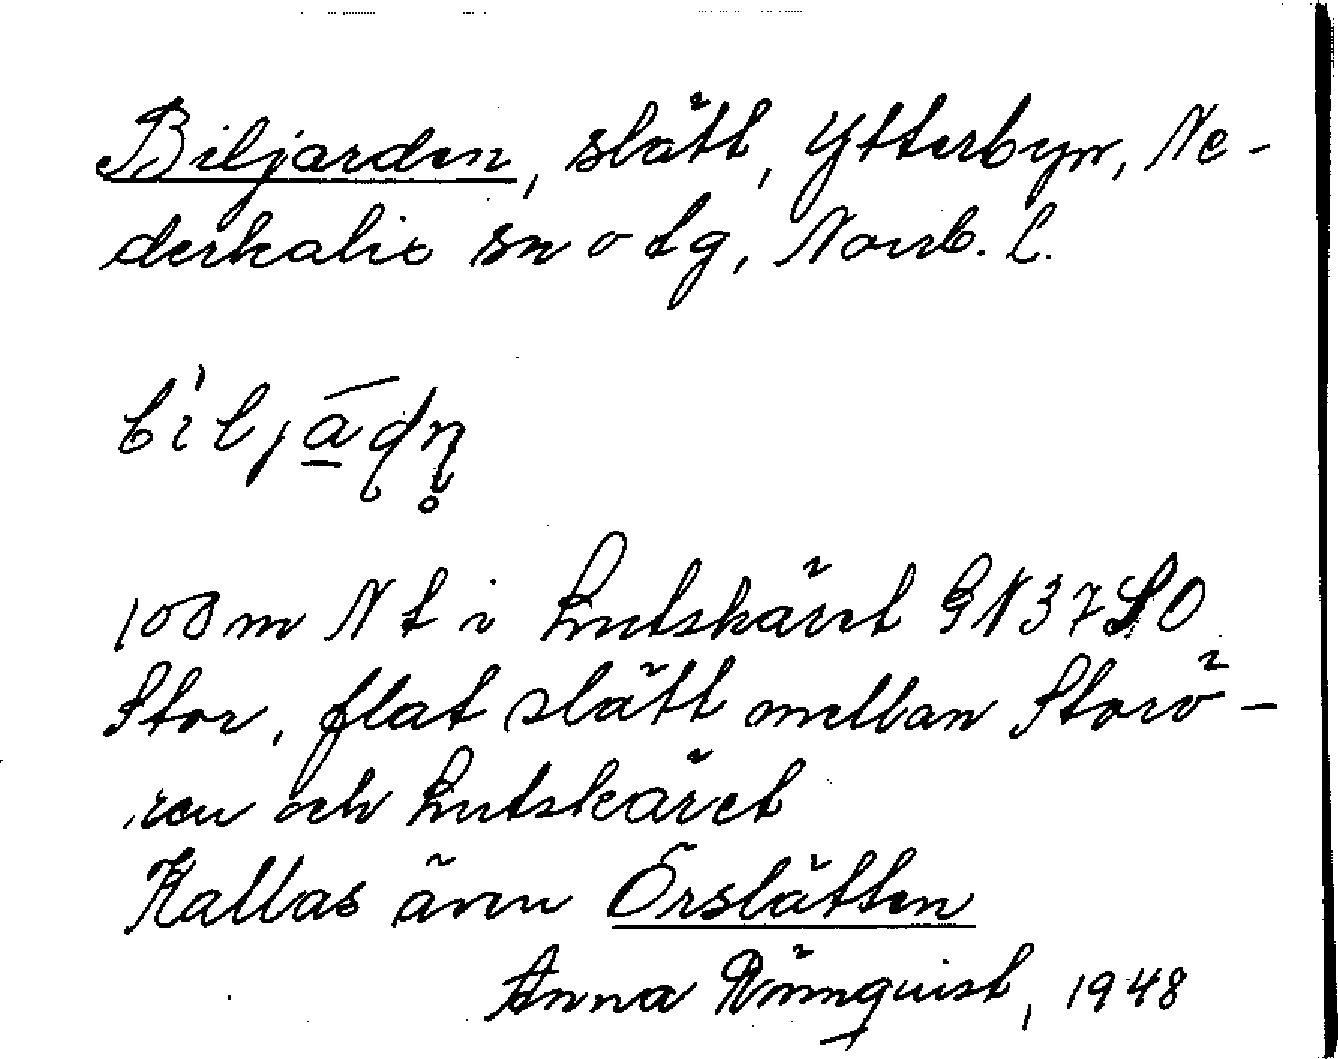 Biljarden, slätt, Ytterbyn, Ne-
derkalix sn o tg, Norrb. l.
bìljā̠ḍṇ̥
100 m N t i Lutskäret GN37SO
Stor, flat slätt mellan Storö-
ren och Lutskäret
Kallas även Örslätten
Anna Rönnquist, 1948